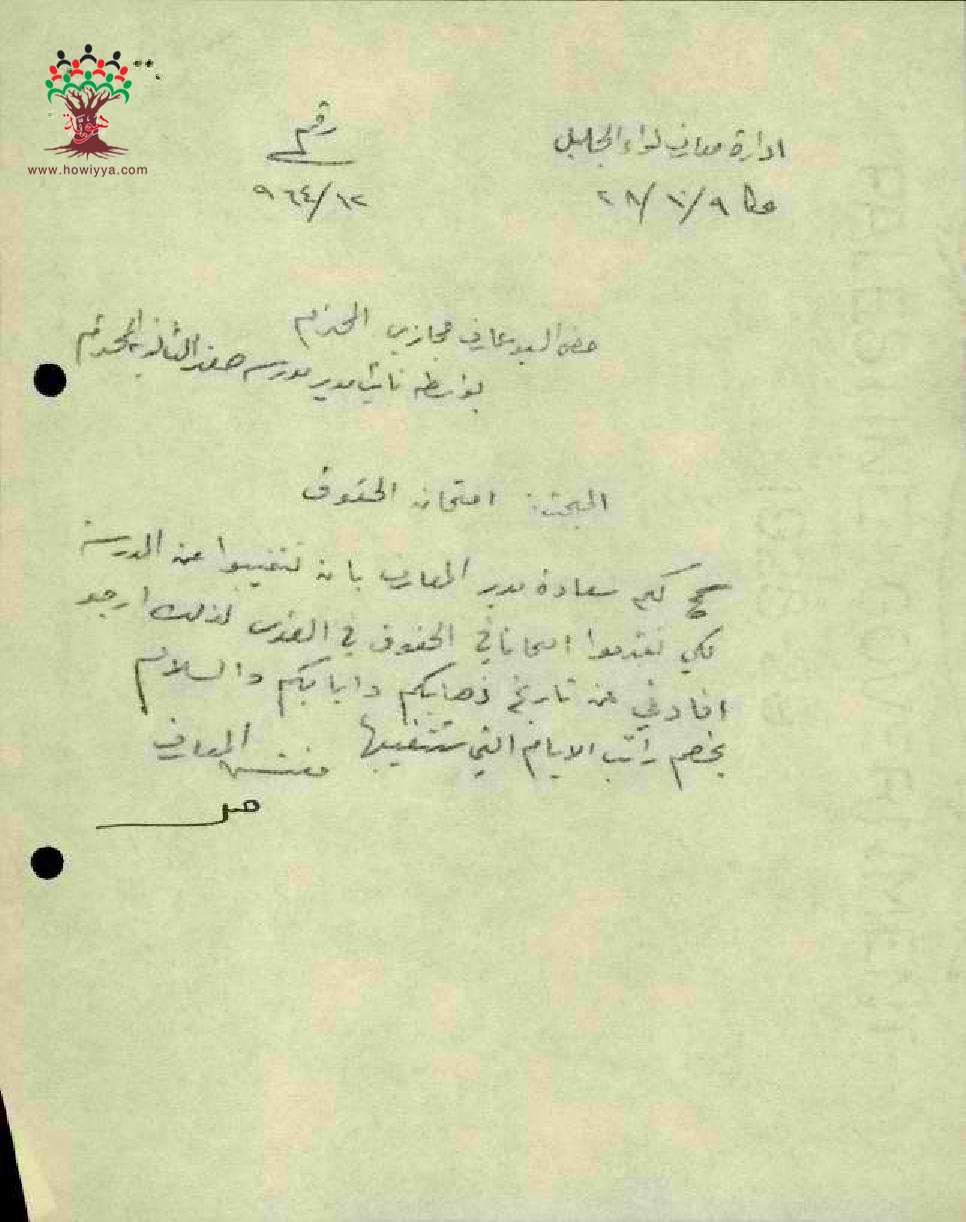 هوية
www.howiyya.com
ادارة معارف لواء الجليل
رقم
عكا ٩/١٠/٢٨
٩٦٤/١٢
حضرة السيد عارف حجازي المحترم
بواسطة نائب مدير مدرسة صفد الثانوية المحترم
المبحث: امتحان الحقوق
سمح لكم سعادة مدير المعارف بان تتغيبوا عن المدرسة
لكي تقدموا امتحانا في الحقوق في القدس لذلك ارجو
افادتي عن تاريخ ذهابكم وايابكم والسلام
يخصم راتب الايام التي تتغيبها
مفتش المعارف